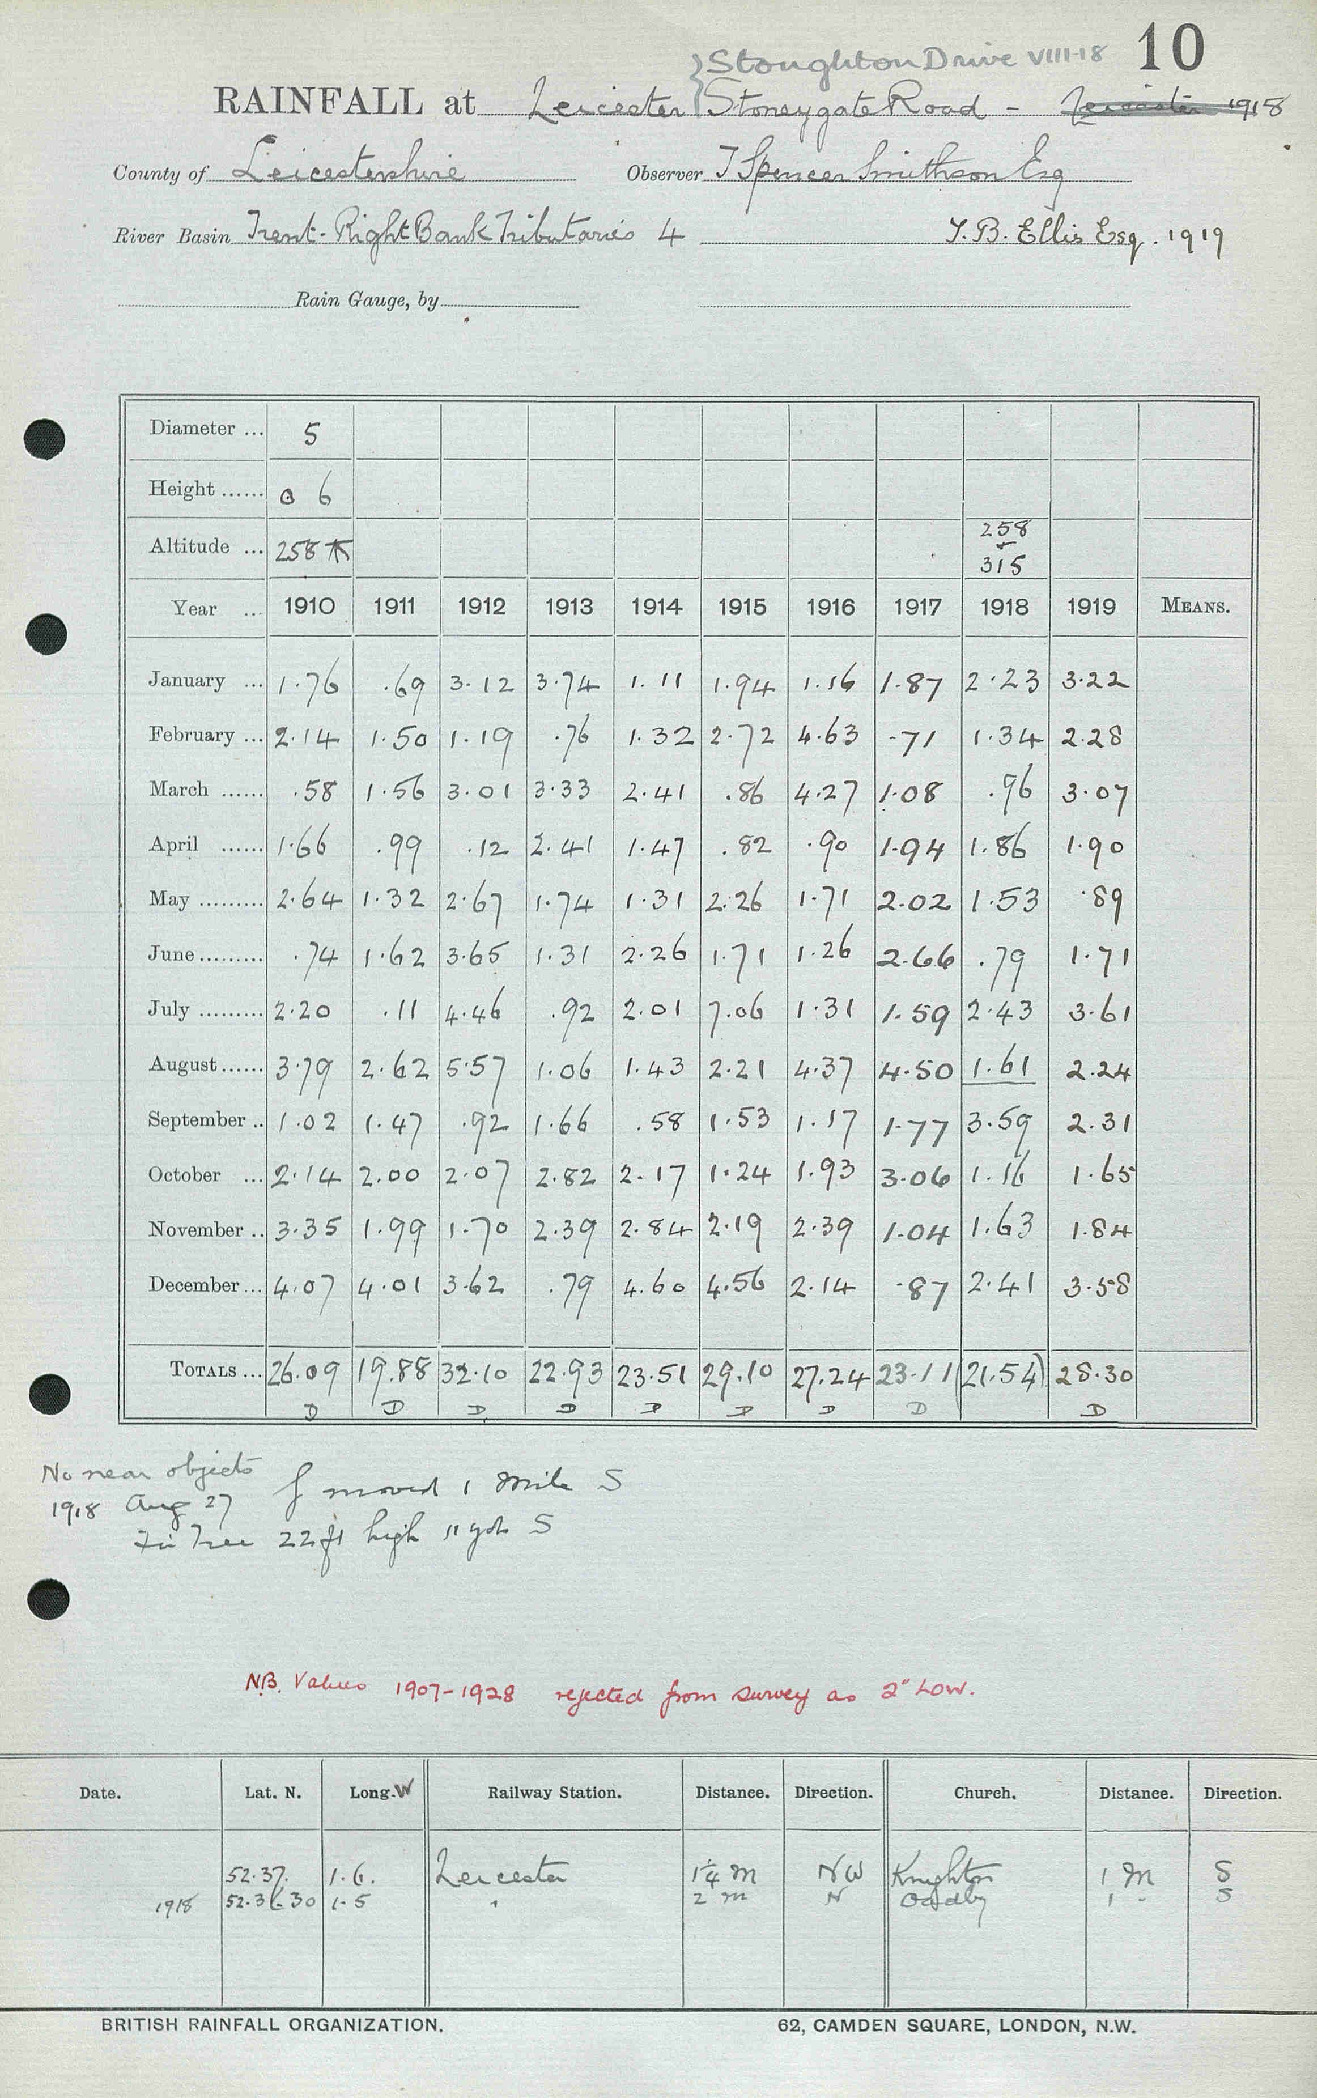 10
}Stoughton Drive VIII-18
RAINFALL at Leicester {Stoneygate Road - Leicester 1918
County of Leicestershire Observer J Spencer Smithson Esq
River Basin Trent-Right Bank Tributaries 4 J.B. Ellis Esq. 1919
Rain Gauge, by
Diameter ... 5
Height ...... 0 6
Altitude ... 258 258 315
Year ... 1910 1911 1912 1913 1914 1915 1916 1917 1918 1919 MEANS.
January ... 1.76 .69 3.12 3.74 1.11 1.94 1.16 1.87 2.23 3.22
February ... 2.14 1.50 1.19 .76 1.32 2.72 4.63 .71 1.34 2.28
March ...... .58 1.56 3.01 3.33 2.41 .86 4.27 1.08 .96 3.07
April ...... 1.66 .99 .12 2.41 1.47 .82 .90 1.94 1.86 1.90
May ......... 2.64 1.32 2.67 1.74 1.31 2.26 1.71 2.02 1.53 .89
June ......... .74 1.62 3.65 1.31 2.26 1.71 1.26 2.66 .79 1.71
July ......... 2.20 .11 4.46 .92 2.01 7.06 1.31 1.59 2.43 3.61
August ...... 3.79 2.62 5.57 1.06 1.43 2.21 4.37 4.50 1.61 2.24
September .. 1.02 1.47 .92 1.66 .58 1.53 1.17 1.77 3.59 2.31
October ... 2.14 2.00 2.07 2.82 2.17 1.24 1.93 3.06 1.16 1.65
November .. 3.35 1.99 1.70 2.39 2.84 2.19 2.39 1.04 1.63 1.84
December ... 4.07 4.01 3.62 .79 4.60 4.56 2.14 .87 2.41 3.58
TOTALS ... 26.09 19.88 32.10 22.93 23.51 29.10 27.24 23.11 (21.54) 28.30
D D D D D D D D D
No near objects
1918 Aug 27 g moved 1 mile S
Fir Tree 22 ft high 11 yds S
N.B. Values 1907-1928 rejected from survey as 2" Low.
Date. Lat. N. Long. W Railway Station. Distance. Direction. Church. Distance. Direction.
52.37. 1.6. Leicester 1¼ M NW Knighton 1 M S
1918 52.36.30 1.5 " 2 m N Oadby 1 " S
BRITISH RAINFALL ORGANIZATION. 62, CAMDEN SQUARE, LONDON, N.W.